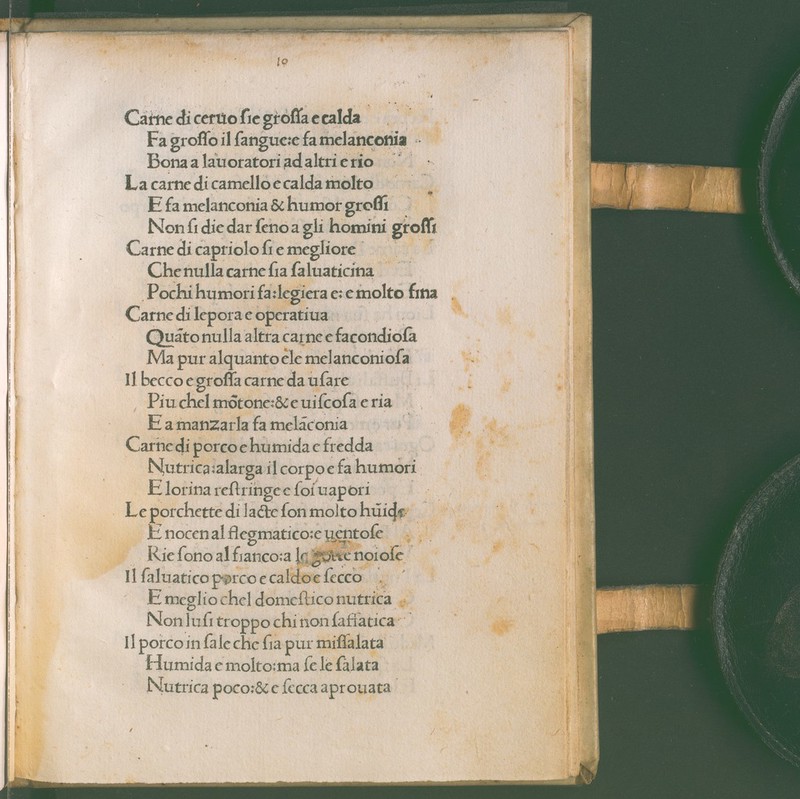 10
Carne di ceruo ſie groſſa e calda
Fa groſſo il ſangue:e fa melanconia
Bona a lauoratori ad altri e rio
La carne di camello e calda molto
E fa melanconia & humor groſſi
Non ſi die dar ſeno a gli homini groſſi
Carne di capriolo ſi e megliore
Che nulla carne ſia ſaluaticina
Pochi humori fa:legiera e: e molto fina
Carne di lepora e operatiua
Quāto nulla altra carne e facondioſa
Ma pur alquanto ele melanconioſa
Il becco e groſſa carne da uſare
Piu chel mōtone:& e uiſcoſa e ria
E a manzarla fa melāconia
Carne di porco e humida e fredda
Nutrica:alarga il corpo e fa humori
E lorina reſtringe e ſoi uapori
Le porchette di lacte ſon molto hūide
E nocen al flegmatico:e uentoſe
Rie ſono al fianco:a le gotte noioſe
Il ſaluatico porco e caldo e ſecco
E meglio chel domeſtico nutrica
Non luſi troppo chi non ſaffatica
Il porco in ſale che ſia pur miſſalata
Humida e molto:ma ſe le ſalata
Nutrica poco:& e ſecca aprouata